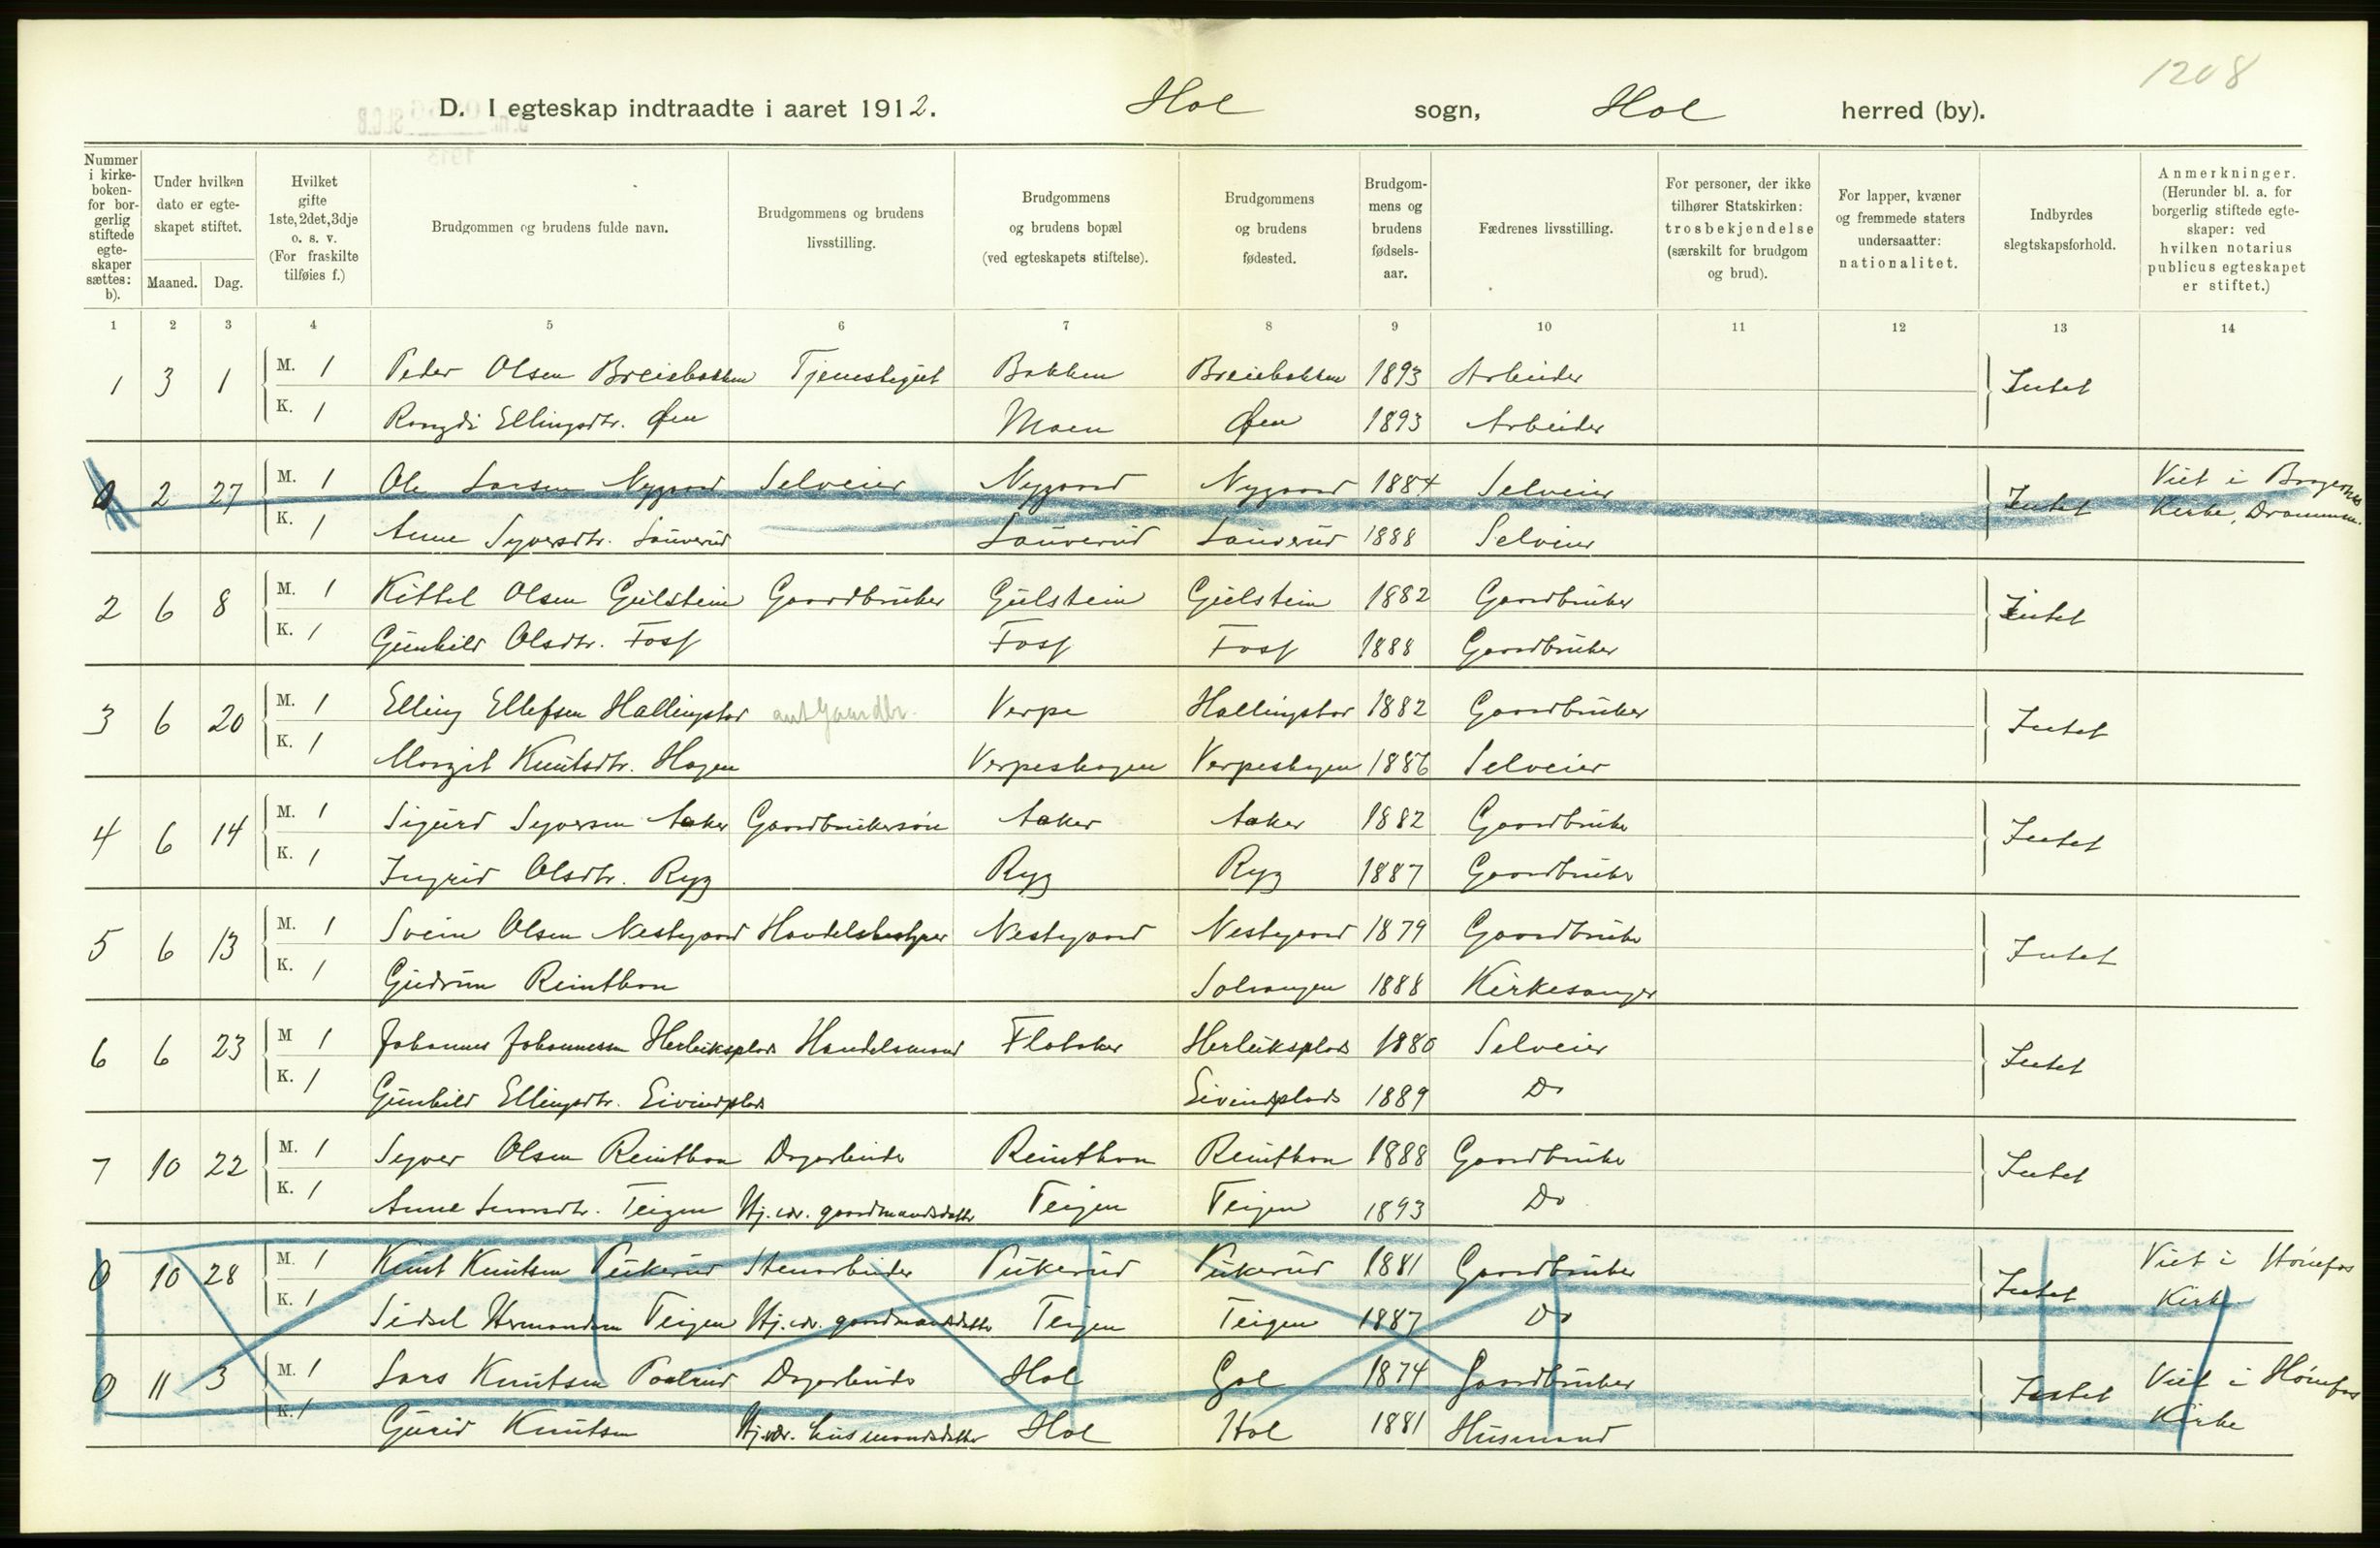 1208
D. I egteskap indtraadte i aaret 1912. Hol sogn, Hol herred (by).
Nummer i kirke-boken- for bor-gerlig stiftede egte-skaper sættes: b).
Under hvilken dato er egte-skapet stiftet.
Maaned. Dag.
Hvilket gifte 1ste, 2det, 3dje o. s. v. (For fraskilte tilføies f.)
Brudgommen og brudens fulde navn.
Brudgommens og brudens livsstilling.
Brudgommens og brudens bopæl (ved egteskapets stiftelse).
Brudgommens og brudens fødested.
Brudgom-mens og brudens fødsels-aar.
Fædrenes livsstilling.
For personer, der ikke tilhører Statskirken: trosbekjendelse (særskilt for brudgom og brud).
For lapper, kvæner og fremmede staters undersaatter: nationalitet.
Indbyrdes slegtskapsforhold.
Anmerkninger. (Herunder bl. a. for borgerlig stiftede egte-skaper: ved hvilken notarius publicus egteskapet er stiftet.)
1 2 3 4 5 6 7 8 9 10 11 12 13 14
1 3 1 M. 1 Peder Olsen Breiebakken Tjenestegut Bakken Breiebakken 1893 Arbeider Intet
K. 1 Rangdi Ellingsdtr. Øen Moen Øen 1893 Arbeider
0 2 27 M. 1 Ole Larsen Nygaard Selveier Nygaard Nygaard 1884 Selveier Intet Viet i Bragernes
K. 1 Anne Syversdtr. Sauverud Sauverud Sauverud 1888 Selveier Kirke, Drammen.
2 6 8 M. 1 Kittel Olsen Gulstein Gaardbruker Gulstein Gulstein 1882 Gaardbruker Intet
K. 1 Gunhild Olsdtr. Foss Foss Foss 1888 Gaardbruker
3 6 20 M. 1 Elling Ellefsen Hallingstad ant Gaardbr. Verpe Hallingstad 1882 Gaardbruker Intet
K. 1 Margit Knutsdtr. Hagen Verpeshagen Verpeshagen 1886 Selveier
4 6 14 M. 1 Sigurd Syversen Aaker Gaardbrukersøn Aaker Aaker 1882 Gaardbruker Intet
K. 1 Ingrid Olsdtr. Ryg Ryg Ryg 1887 Gaardbruker
5 6 13 M. 1 Svein Olsen Nestegaard Handelsbestyrer Nestegaard Nestegaard 1879 Gaardbruker Intet
K. 1 Gudrun Reinthon Solvangen 1888 Kirkesanger
6 6 23 M 1 Johannes Johannessen Herleiksplads Handelsmand Flataker Herleiksplads 1880 Selveier Intet
K. 1 Gunhild Ellingsdtr. Eivindsplads Eivindsplads 1889 Do
7 10 22 M. 1 Syver Olsen Reinthon Dagarbeider Reinthon Reinthon 1888 Gaardbruker Intet
K. 1 Anne Teigen Hj.vær. gaardmandsdatter Teigen Teigen 1893 Do
0 10 28 M. 1 Knut Knutsen Pukerud Stenarbeider Pukerud Pukerud 1881 Gaardbruker Intet Viet i Hønefos
K. 1 Sidsel Hermandsen Teigen Hj.vær. gaardmandsdatter Teigen Teigen 1887 Do Kirke
0 11 3 M. 1 Lars Knutsen Paalrud Dagarbeider Hol Gol 1874 Gaardbruker Intet Viet i Hønefos
K. 1 Gurid Knutsen Hj.vær. husmandsdatter Hol Hol 1881 Husmand Kirke